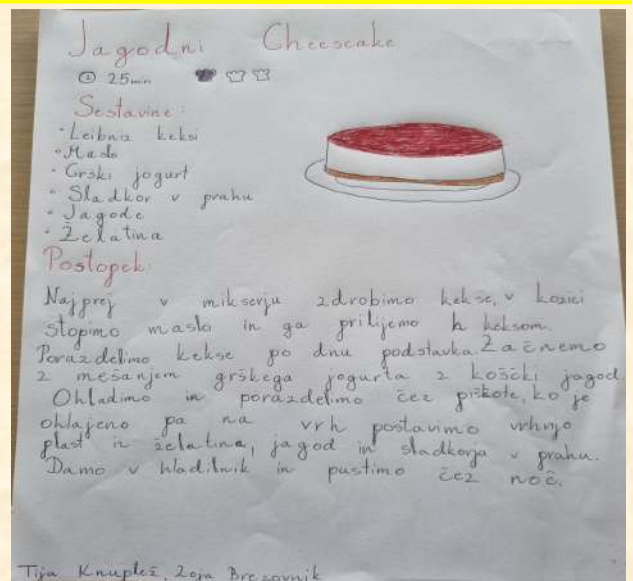 Jagodni Cheescake
25min
Sestavine:
• Leibniz keksi
• Maslo
• Grški jogurt
• Sladkor v prahu
• Jagode
• Želatina
Postopek:
Najprej v mikserju zdrobimo kekse, v kozici
stopimo maslo in ga prilijemo h keksom.
Porazdelimo kekse po dnu podstavka. Začnemo
z mešanjem grškega jogurta z koščki jagod.
Ohladimo in porazdelimo čez piškote, ko je
ohlajeno pa na vrh postavimo vrhnjo
plast iz želatina, jagod in sladkorja v prahu.
Damo v hladilnik in pustimo čez noč.
Tija Knuplež, Zoja Brezovnik